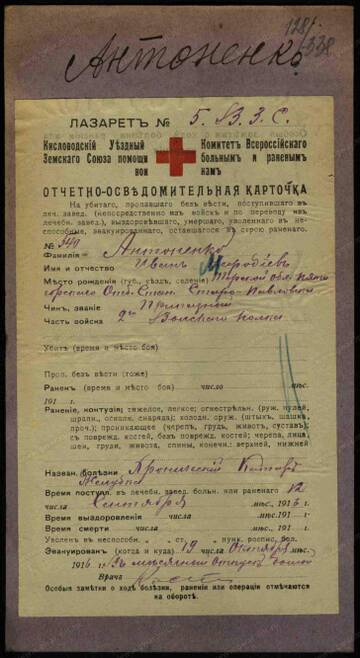 128/338
Антоненко
ЛАЗАРЕТЪ № 5. В.З.С.
Кисловодскій Уѣздный Комитетъ Всероссійскаго
Земскаго Союза помощи больнымъ и раненымъ
воинамъ
ОТЧЕТНО-ОСВѢДОМИТЕЛЬНАЯ КАРТОЧКА
На убитаго, пропавшаго безъ вѣсти, поступившаго въ
леч. завед. (непосредственно изъ войскъ и по переводу изъ
лечебн. завед.), выздоровѣвшаго, умершаго, уволеннаго въ не-
способные, эвакуированнаго, оставшагося въ строю раненаго.
№ 349
Фамилія Антоненко
Имя и отчество Иванъ
Мѣсто рожденія (губ., уѣздъ, селеніе) Терской обл. Пяти-
горскаго Отд. Стан. Старо-Павловск.
Чинъ, званіе
Часть войска 2го Волгскаго полка
Убитъ (время и мѣсто боя)
Проп. безъ вѣсти (тоже)
Раненъ (время и мѣсто боя) число мѣс.
191 г.
Раненіе, контузія: тяжелое, легкое; огнестрѣльн. (руж. пулей,
шрапн., осколк. снаряда); холодн. оруж. (штыхъ, шашка,
проч.); проникающее (черепъ, грудь, животъ, суставъ);
съ поврежд. костей, безъ поврежд. костей; черепа, лица,
шеи, груди, живота, спины, конечн.: верхней, нижней
Назван. болѣзни Хроническій Катарръ
Желудка
Время поступл. въ лечебн. завед. больн. или раненаго 12
числа Сентября мѣс., 1916 г.
Время выздоровленія числа мѣс., 191 г.
Время смерти числа мѣс., 191 г.
Уволенъ въ неспособн. " ст. " пунк. роспис. бол.
Эвакуированъ (когда и куда) 19 числа Октября мѣс.
1916 г. мѣсячный отпускъ домой
Врачъ
Особыя замѣтки о ходѣ болѣзни, раненіи или операціи отмѣчаются
на оборотѣ.